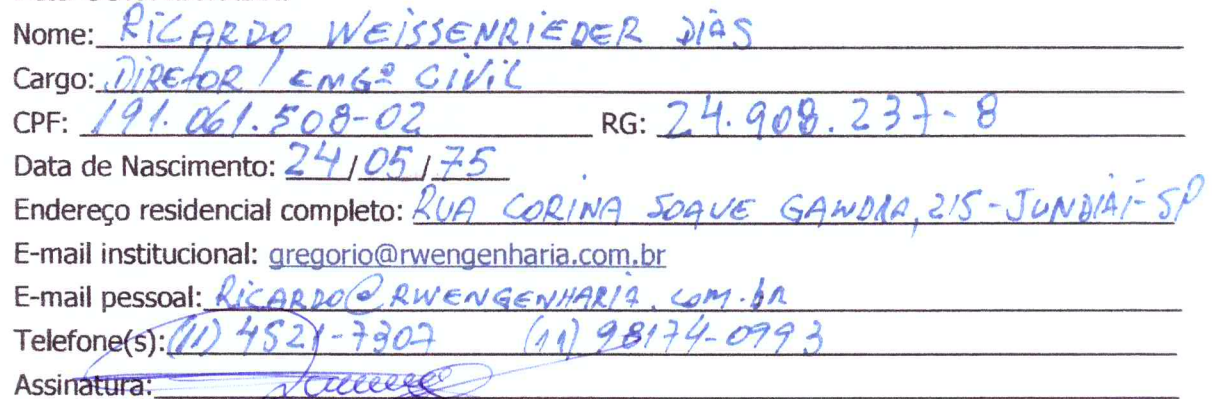 Nome: RICARDO WEISSENRIEDER DIAS
Cargo: DIRETOR / ENGº CIVIL
CPF: 191.061.508-02 RG: 24.908.237-8
Data de Nascimento: 24/05/75
Endereço residencial completo: RUA CORINA SOAVE GANDRA, 215 - JUNDIAÍ-SP
E-mail institucional: gregorio@rwengenharia.com.br
E-mail pessoal: RICARDO@RWENGENHARIA.COM.BR
Telefone(s): (11) 4521-7307 (11) 98174-0993
Assinatura: